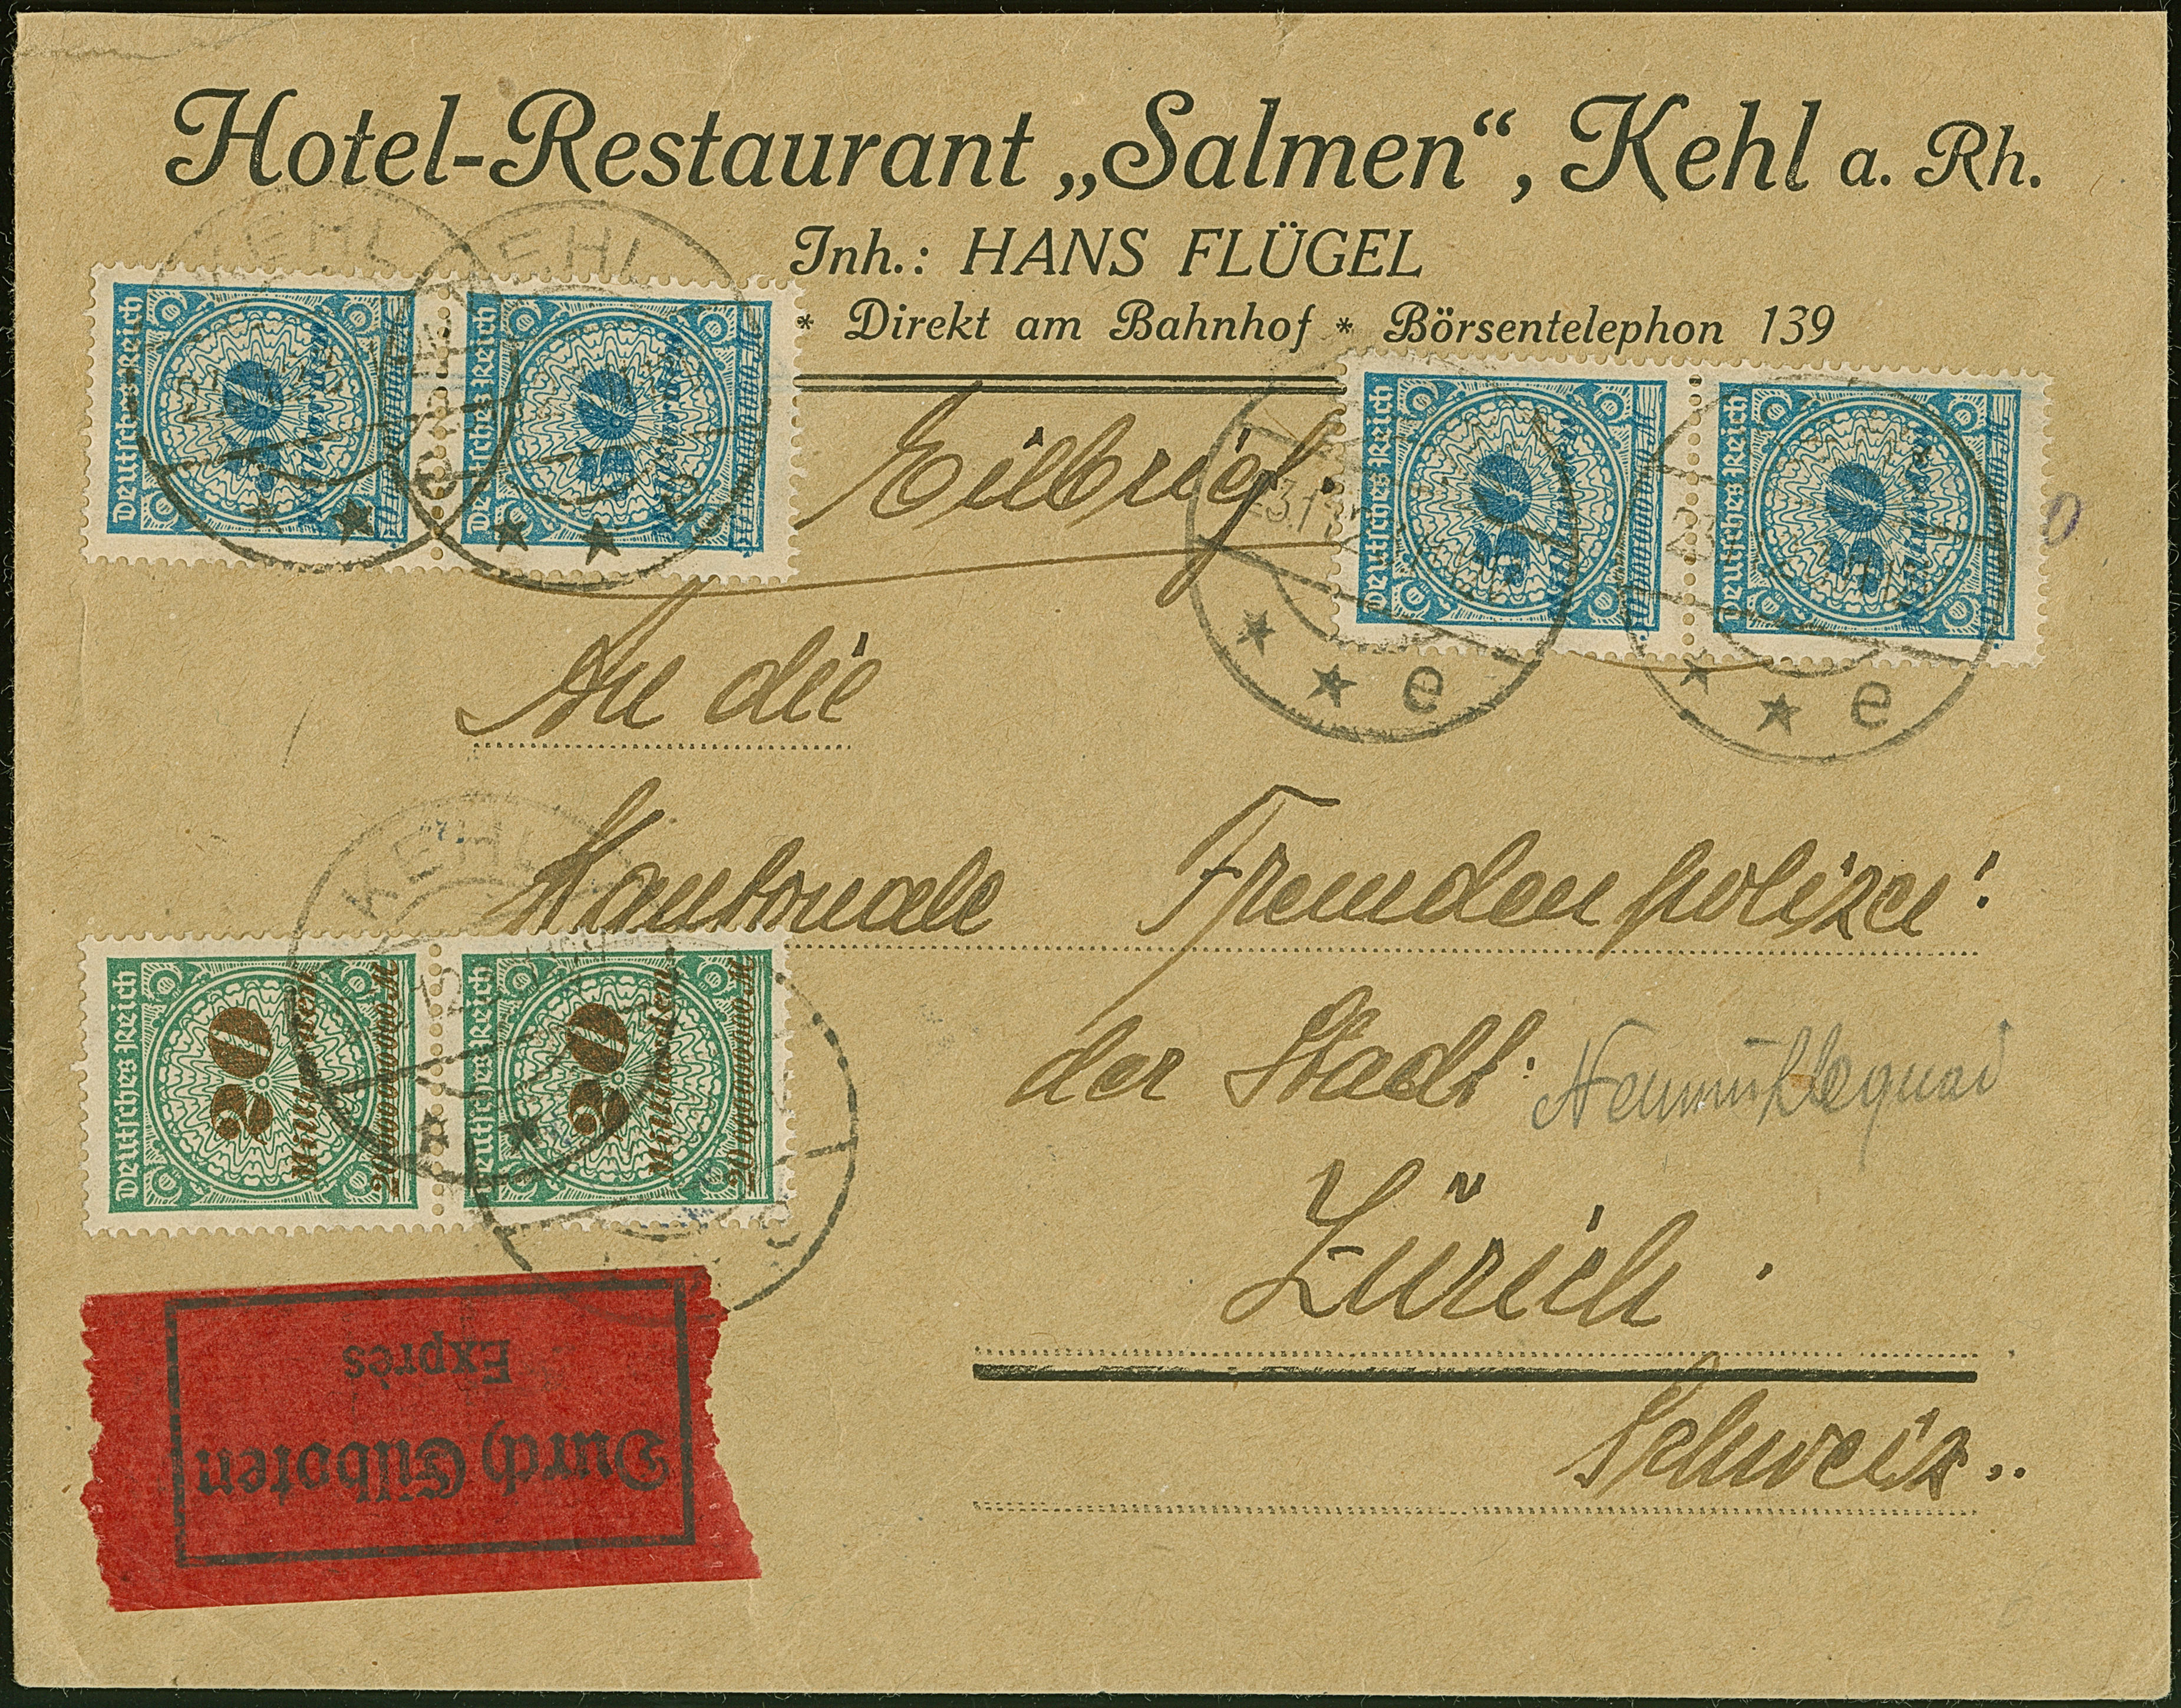 Hotel-Restaurant „Salmen“, Kehl a. Rh.
Inh.: HANS FLÜGEL
* Direkt am Bahnhof * Börsentelephon 139
KEHL
KEHL
Deutsches Reich
Deutsches Reich
Deutsches Reich
Deutsches Reich
Eilbrief.
* * e
* * e
An die
Kantonale Fremdenpolizei
der Stadt Neumühlequai
Zürich.
Schweiz..
KEHL
Deutsches Reich 20 Milliarden
Deutsches Reich 20 Milliarden
Durch Eilboten
Exprès